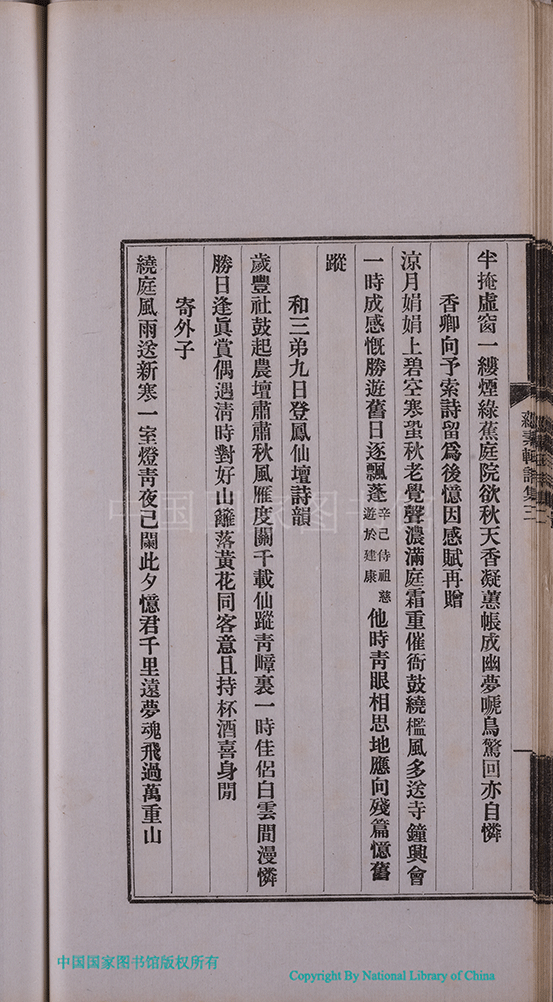 半掩虛窗一縷煙綠蕉庭院欲秋天香凝蕙帳成幽夢啼鳥驚回亦自憐
香卿向予索詩留爲後憶因感賦再贈
涼月娟娟上碧空寒蛩秋老覺聲濃滿庭霜重催衙鼓繞檻風多送寺鐘興會
一時成感慨勝遊舊日逐飄蓬辛巳侍祖慈遊於建康他時靑眼相思地應向殘篇憶舊
蹤
和三弟九日登鳳仙壇詩韻
歲豐社鼓起農壇肅肅秋風雁度關千載仙蹤靑嶂裏一時佳侶白雲間漫憐
勝日逢眞賞偶遇淸時對好山籬落黃花同客意且持杯酒喜身閒
寄外子
繞庭風雨送新寒一室燈靑夜已闌此夕憶君千里遠夢魂飛過萬重山
中国国家图书馆
中国国家图书馆版权所有
Copyright By National Library of China